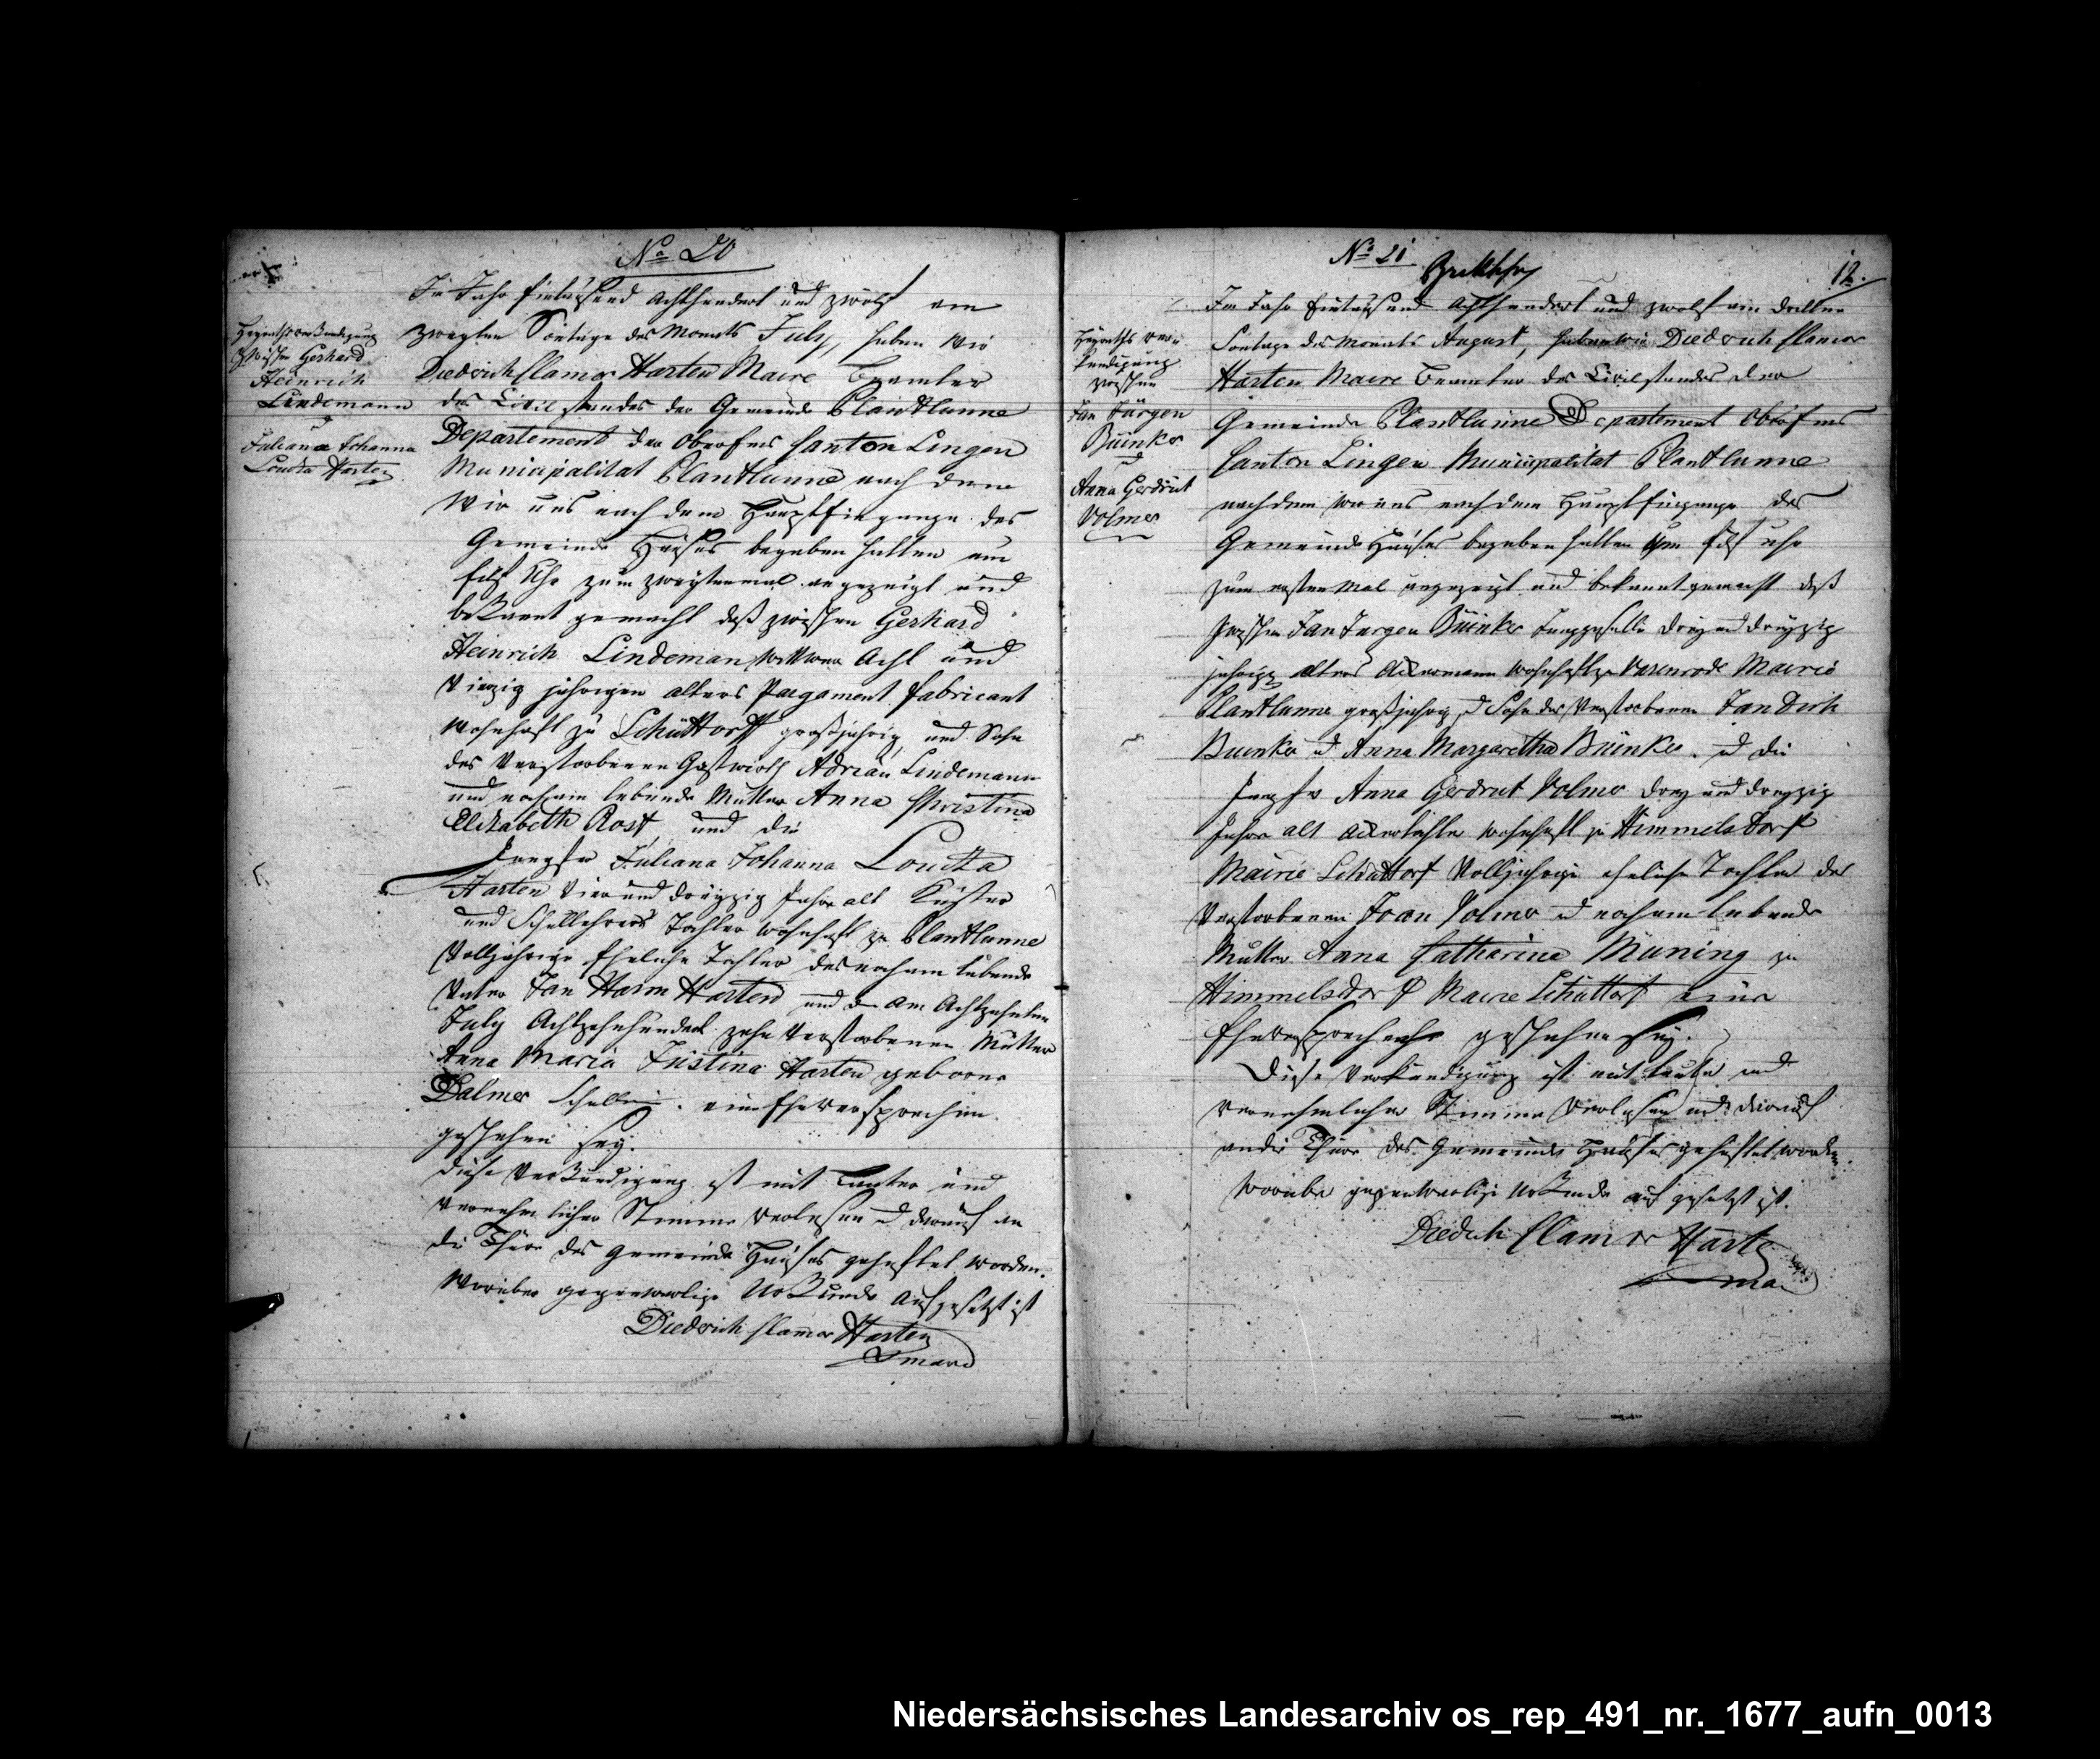 No 20
Heyrathsverkündigung
zwischen Gerhard
Heinrich
Lindemann
u
Juliana Johanna
Loucta Harten
Im Jahr Eintausend Achthundert und zwölf am
zweyten Sontage des Monats July, haben Wir
Diedrich Clamor Harten Maire Beamter
des Civil standes der Gemeinde Plantlünne
Departement der Oberems Canton Lingen
Municipalitat Plantlünne nach dem
Wir uns nach dem Haupteingange des
Gemeinde Hauses begeben hatten um
Eilf Uhr zum zweytenmal angezeigt und
bekannt gemacht daß zwischen Gerhard
Heinrich Lindeman Wittwer Acht und
Vierzig jährigen alters Pargament fabricant
Wohnhaft zu Schüttorff großjährig und Sohn
des Verstorbenen Gastwirth Adrian Lindemann
und noch am lebende Mutter Anna Christina
Elisabeth Rost, und die
Jungfer Juliana Johanna Loucta
Harten Vier und dreyzig Jahr alt Küster
und Schullehrers Tochter wohnhaft zu Plantlünne
Volljährige Eheliche Tochter des noch am lebende
Vater Jan Harm Harten und der am Achtzehnten
July Achtzehnhundert zehn Verstorbenen Mutter
Anna Maria Justina Harten geborne
Dalmer eine Eheversprechen
geschehen sey.
Diese Verkündigung ist mit Lauter und
vernehmlicher Stimme verlesen u darauf an
die Thüre des Gemeinde Hauses geheftet worden.
Worüber gegenwärtige Urkunde Aufgesetzt ist
Diedrich Clamor Harten
No 21
12.
Heyraths ver=
kündigung
zwischen
Jan Jürgen
Büinker
u
Anna Gerdrut
Volmer
Im Jahr Eintausend Achthundert und zwölf am dritten
Sontage des Monats August, haben wir Diedrich Clamor
Harten Maire Beamter des Civilstandes der
Gemeinde Plantlünne Departement Oberems
Canton Lingen Municipalitat Plantlünne
nachdem wir uns nach dem Haupteingange des
Gemeinde Hauses begeben hatten Um Eilf uhr
zum ersten Mal angezeigt und bekannt gemacht daß
zwischen Jan Jurgen Büinker Junggeselle drey und dreyzig
jährigen alters Ackermann wohnhaft zu Varenrode Mairie
Plantlünne großjährig, u Sohn des Verstorbenen Jan Dirk
Buinker u Anna Margaretha Büinker. u die
Jungfer Anna Gerdrut Volmer drey und dreyzig
Jahr alt wohnhaft zu Himmelsdorf
Mairie Schüttorf Volljährige eheliche Tochter des
Verstorbenen Joan Volmer u noch am lebende
Mutter Anna Catharina Müning zu
Himmelsdorf Maire Schüttorf eine
Eheversprechung geschehen sey.
Diese Verkündigung ist mit lauter und
vernehmlicher Stimme Verlesen und darauf
an die Thüre des Gemeinde Hauses geheftet worden.
Worüber gegenwärtige Urkunde auf gesetzt ist.
Diedrich Clamor Harten
Niedersächsisches Landesarchiv os_rep_491_nr._1677_aufn_0013